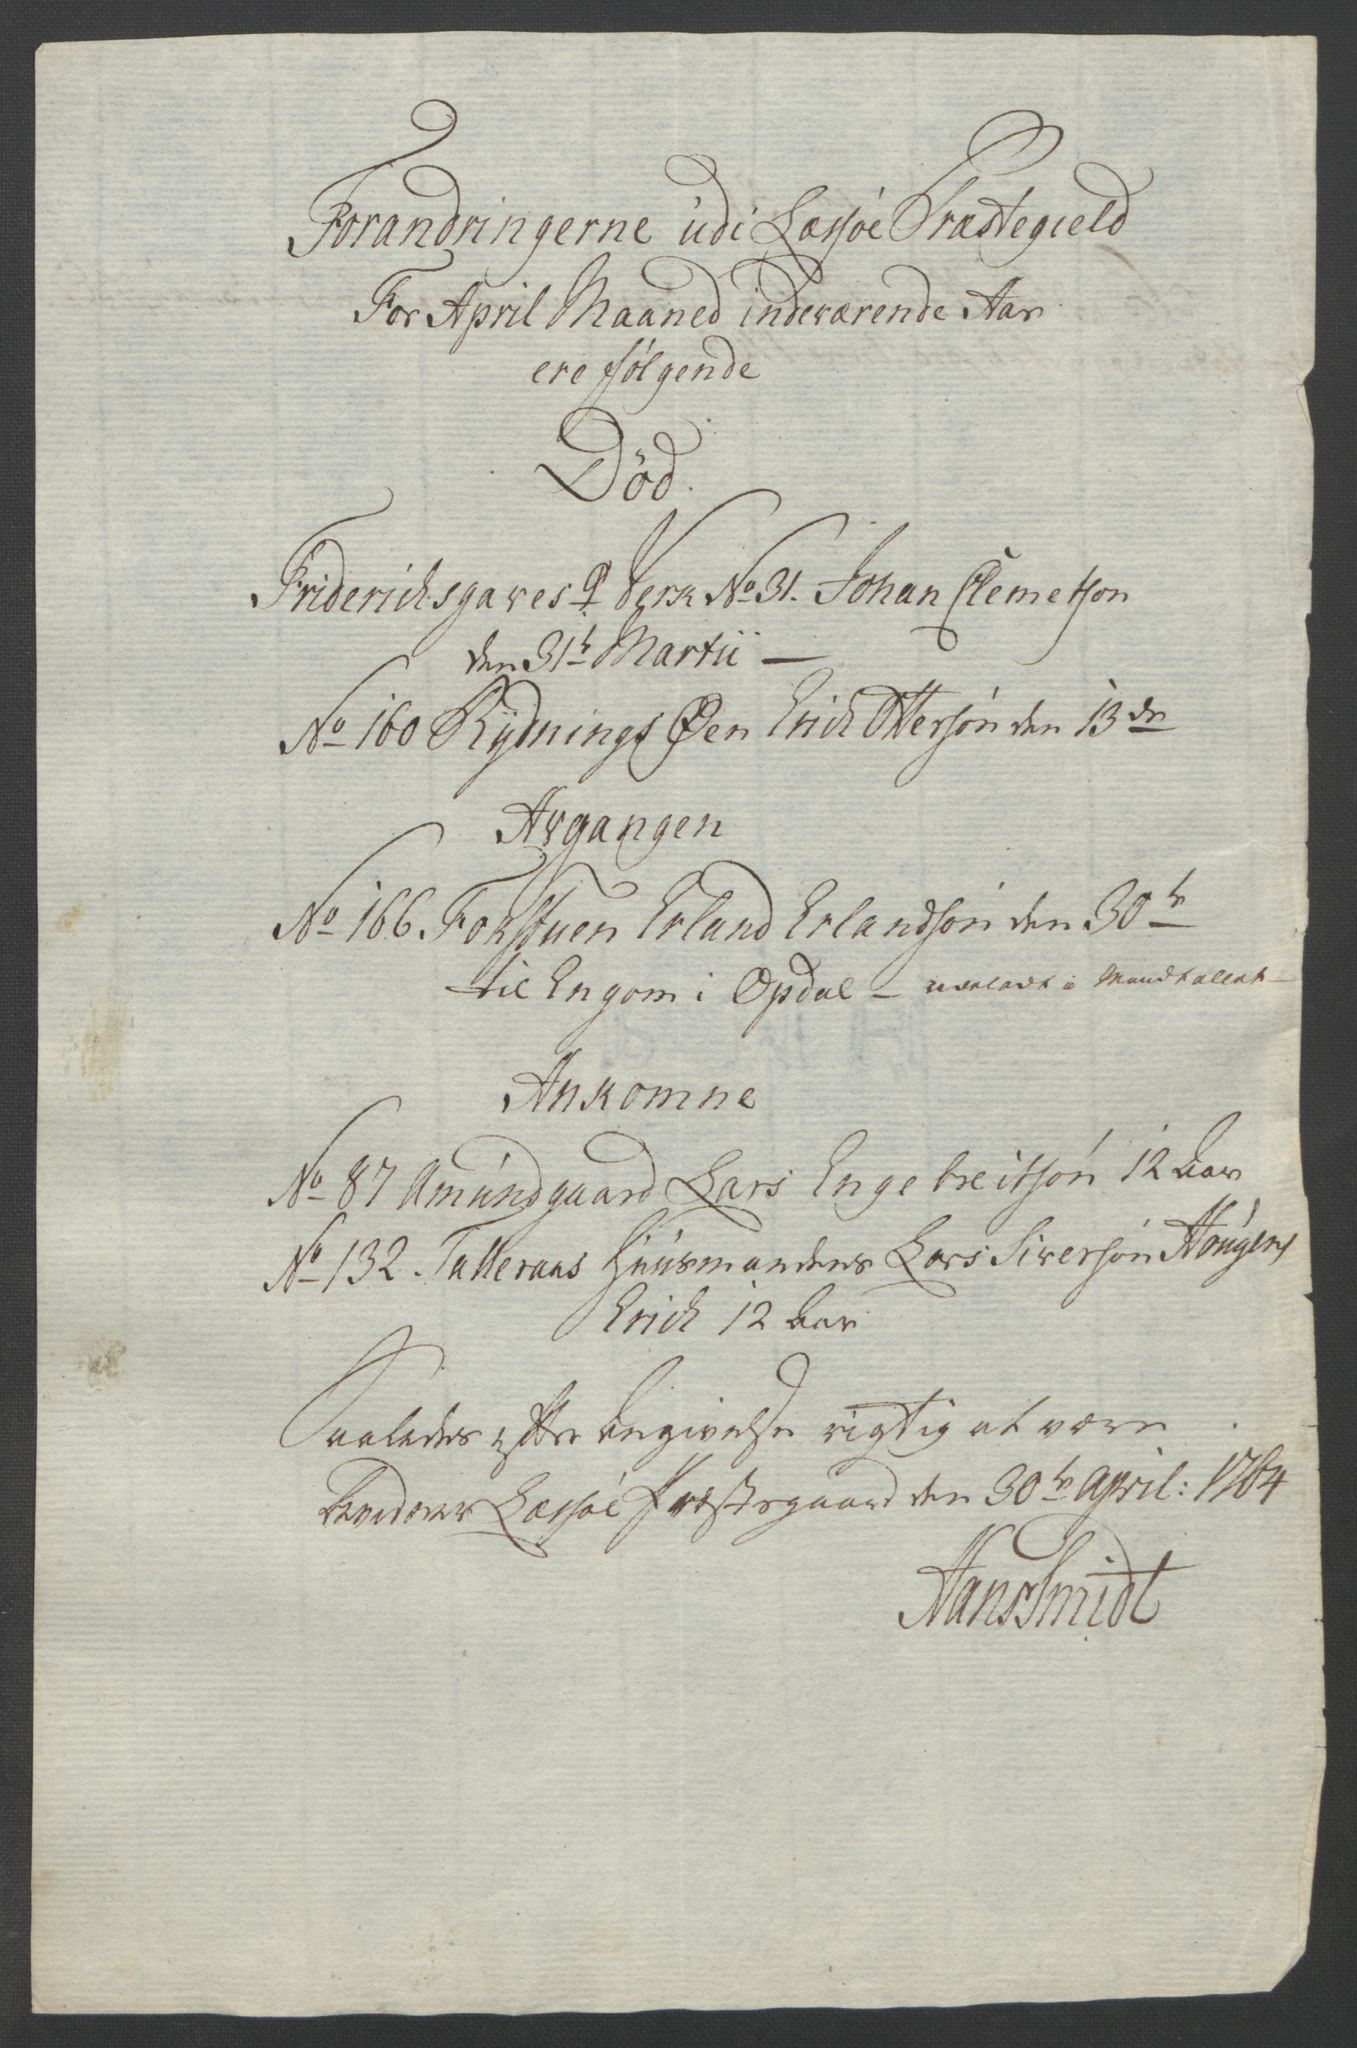 Forandringerne udi Læssøe Præstegield
For April Maaned indeværende Aar
ere følgende
Død.
Friderichsgaves Verk No 31. Johan Clemetson
den 31te Martii —
No 160 Rydnings Øen Erich Ottersøn den 13de
Avgangen
No 166. Forstuen Erland Erlandsøn den 30te
til Engom i Opdal — udeladt i Mandtallet —
Ankomne
No 87 Amundgaard Lars Engebreitsøn 12 Aar
No 132. Talleraas Huusmandens Lars Siversøn Hougens
Erich 12 Aar
Saaledes efter Angivelse rigtig at være
bevidner Læssøe Præstegaard den 30te April: 1764
Hans Smidt